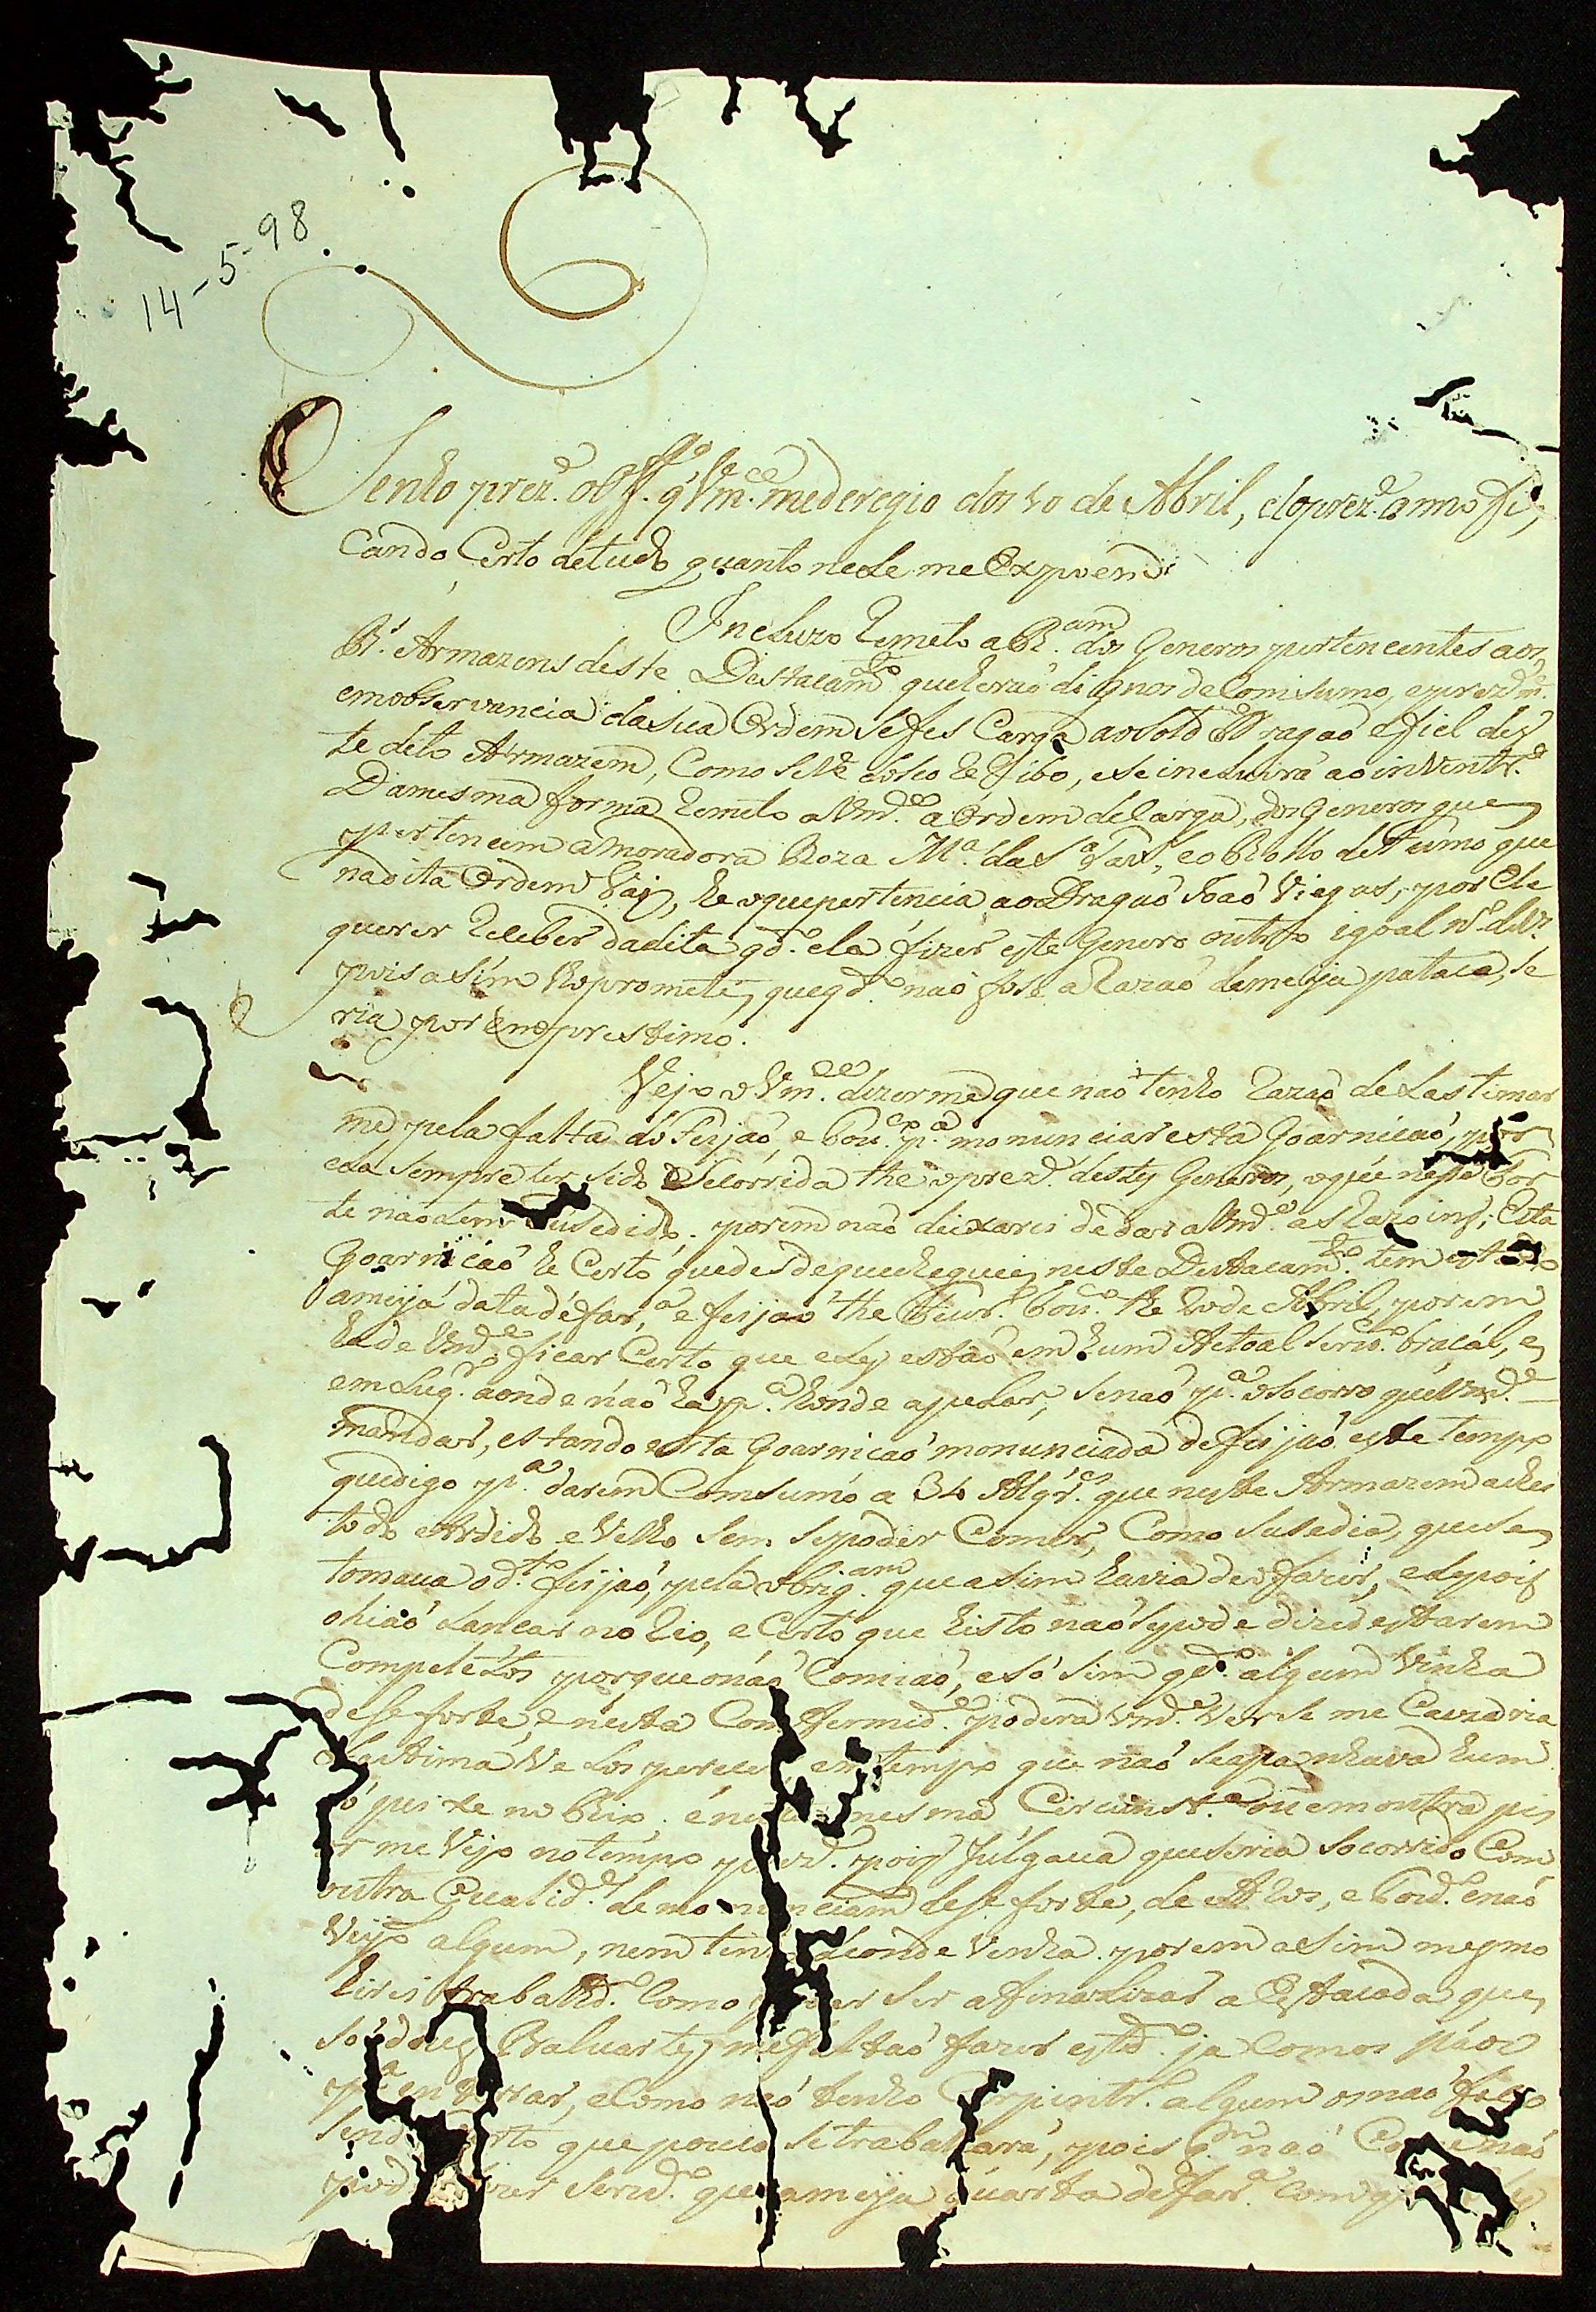 14-5-98
Tenho prez.e o Off.o q̃ Vm.ce me deregio dos 10 de Abril, do prez.e anno fi,
cando Certo de tudo quanto nele me Expoem
Incluzo Remeto a R.am dos Generos pertencentes aos
R.s Armazens deste Destacam.to que herão dignos de Comsumo, e prez.e m.e
em observancia da sua Ordem se fes Carga ao Sold.o Dragaõ e fiel des
te dito Armazem, Como se Ve do seo Resibo, e se incluirá ao inventr.o
Da mesma forma Remeto a Vm.ce a Ordem de Carga, dos Generos que
pertencem a moradora Roza M.a da S.a e o Rollo de Fumo que
na dita Ordem Vai, he o que pertencia ao Dragaõ Joaõ Viegas, por Ele
querer Receber da dita qd.o ela fizer este Genero outro igoal
pois asim lho promete, que qd.o naõ fose a Razaõ de meija pataca, se
ria por Emprestimo.
Vejo o Vm.ce dizerme que naõ tenho Razaõ de Lastimar
me pela falta do Feijaõ e p.a monunciar esta Goarnicaõ, por
ela sempre ter sido Secorrida the o prez.e destes Generos, o que nese For
te naõ tem susedido. porem naõ deixarei de dar a Vm.ce as Razoins; Esta
Goarnicaõ he Certo que desde que cheguei neste Destacam.to tem estado
a meija data de far.a e feijaõ the Abril, porem
ha de Vm.ce ficar Certo que eles estaõ em hum Actoal servi.o bracál, e
em Lug.r aonde naõ ha p.a honde apelar, senaõ p.a o Socorro que Vm.ce
mandar, estando esta Goarnicaõ monunciada de feijaõ este tempo
que digo p.a darem Comsumo a 34 Alqr.s que neste Armazem achei
todo Ardido e Velho sem se poder Comer, Como susedia, que se
tomava o d.to feijaõ, pela obrig.am que asim havia de o fazer, e depois
o hiaõ Lancar no Rio, e Certo que histo naõ se pode dizer estarem
Compeletos porque o naõ Comiaõ, e só sim qd.o algum Vinha
dese forte, e nesta Comfermid.e poderá Vm.ce Ver se me Cauzaria
Lastima Velos perecer em tempo que naõ se apanhava hum
só peixe no Rio, e nesta mesma Circunst.a ou em outra pi
or me Vejo no tempo prez.e pois Julgava que seria Socorrido Com
outra Qualid.e de monunciam dese forte, de e naõ
Vejo algum, nem tenho de onde Venha. porem asim mesmo
hirei trabalhd.o Como poder ser a finalizar a Estacada que
só dous Baluartes me faltaõ fazer estd.o ja Com os páos
p.a enterrar, e Como naõ tenho Carpintr.o algum o naõ faço
sendo Certo que pouco se trabalhará, pois q.m naõ Come naõ
pode fazer servi.o que a meija quarta de far.a